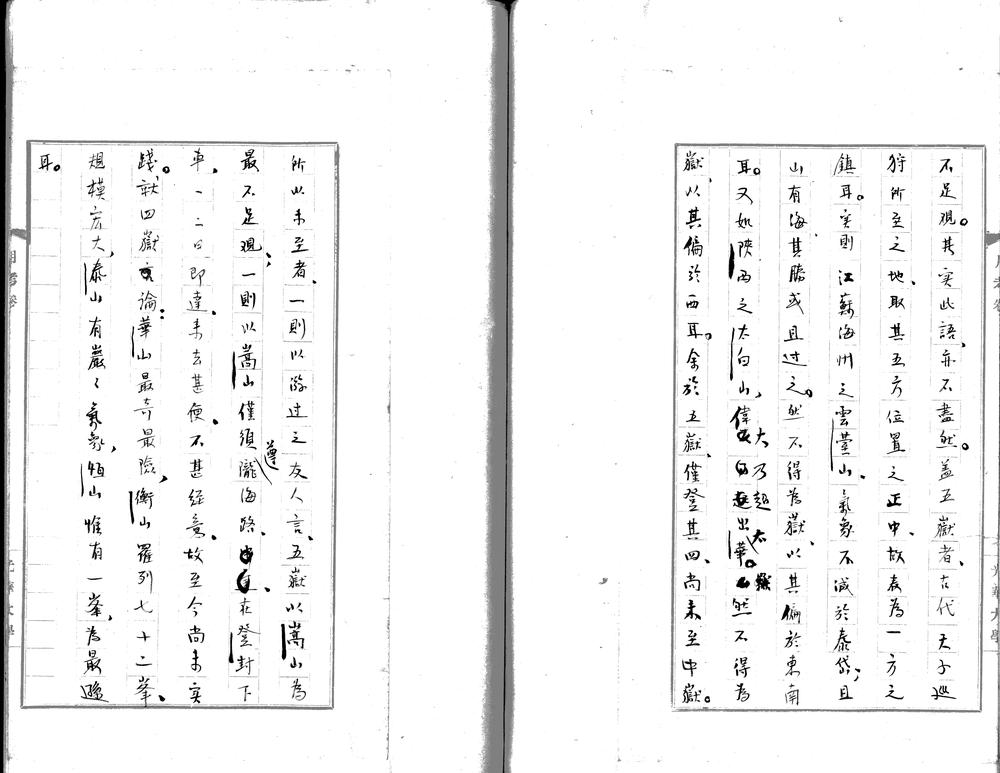 不足觀。其實此語、亦不盡然。蓋五嶽者、古代天子巡
狩所至之地、取其五方位置之正中、故表為一方之
鎮耳。实則江蘇海州之雲臺山、氣象不減於泰岱；且
山有海、其勝或且过之。然不得為嶽、以其偏於東南
耳。又如陝西之太白山，偉大乃超出太華。然不得為
嶽、以其偏於西耳。余於五嶽、僅登其四、尚未至中嶽。
所以未至者、一則以游过之友人言、五嶽以嵩山為
最不足觀；一則以嵩山僅須遵隴海路、在登封下
車、一二日即達、来去甚便。不甚经意。故至今尚未实
踐。就四嶽論：華山最奇最險，衡山羅列七十二峯、
規模宏大，泰山有巖々氣象，恒山惟有一峯、為最遜
耳。
光華大學